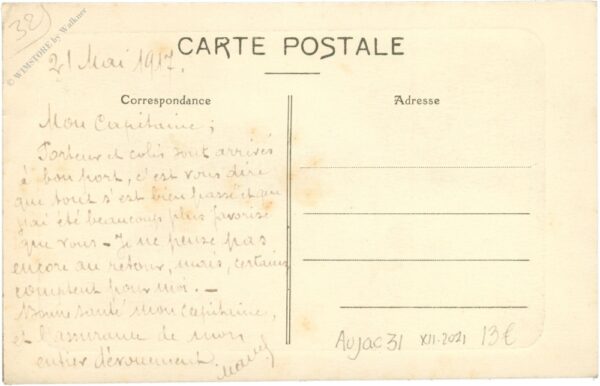 32
© WIMSTORE by Walkner
CARTE POSTALE
21 Mai 1917.
Correspondance
Adresse
Mon Capitaine;
Porteur et colis sont arrivés
à bon port, c'est vous dire
que tout s'est bien passé et que
j'ai été beaucoup plus favorisé
que vous - Je ne pense pas
encore au retour, mais, certains
comptent pour moi. -
Bonne santé Mon Capitaine,
et l'assurance de mon
entier dévouement
Aujac 31 XII-2021 13€